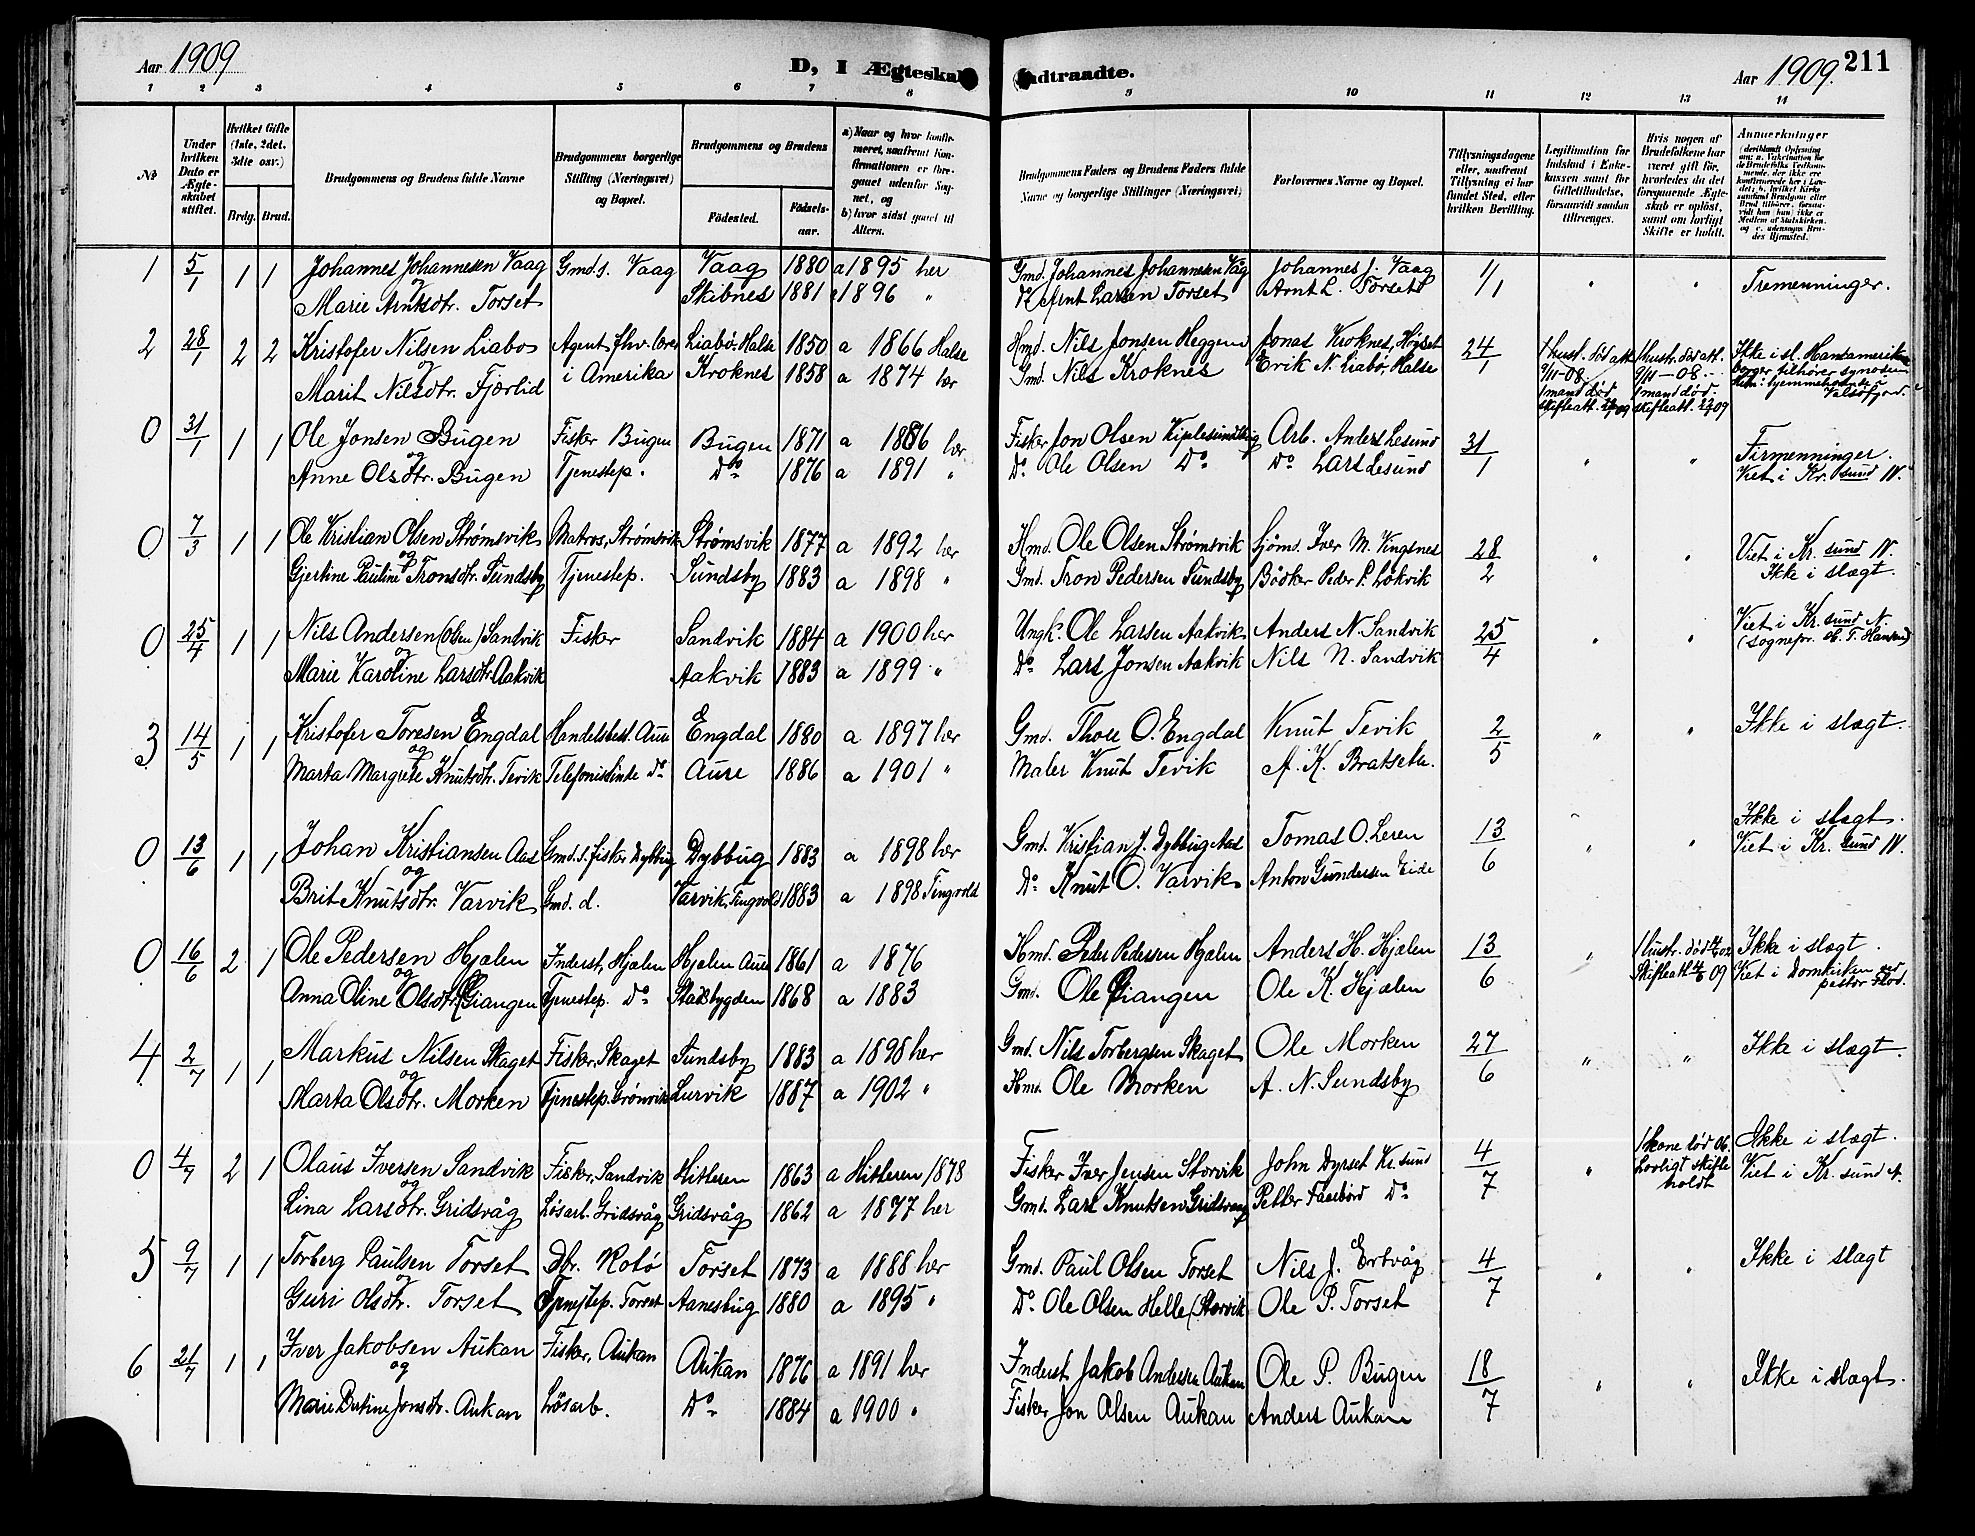 Aar 1909
D, I Ægteskab Indtraadte.
Aar 1909. 211
1 2 3 4 5 6 7 8 9 10 11 12 13 14
№
Under hvilken Dato er Ægteskabet stiftet.
Hvilket Gifte (1ste, 2det, 3die osv.)
Brdg. Brud.
Brudgommens og Brudens fulde Navne
Brudgommens borgerlige Stilling (Næringsvei) og Bopæl.
Brudgommens og Brudens
Fødested.
Fødselsaar.
a) Naar og hvor konfirmeret, saafremt Konfirmationen er foregaaet udenfor Sognet, og
b) hvor sidst gaaet til Alters.
Brudgommens Faders og Brudens Faders fulde Navne og borgerlige Stillinger (Næringsvei)
Forlovernes Navne og Bopæl.
Tillysningsdagene eller, saafremt Tillysning ei har fundet Sted, efter hvilken Bevilling.
Legitimation for Indskud i Enkekassen samt for Giftetilladelse, forsaavidt saadan tiltrænges.
Hvis nogen af Brudefolkene har været gift før, hvorledes da det foregaaende Ægteskab er opløst, samt om lovligt Skifte er holdt.
Anmerkninger
1 5/1 1 1 Johannes Johannesen Vaag Gmd.s. Vaag Vaag 1880 a 1895 her Gmd. Johannes Johannesen Våg Johannes J. Vaag 1/1 " " Tremenninger.
og
Marie Arntsdtr. Torset Skibnes 1881 a 1896 " Do Arnt Larsen Torset Arnt L. Torset
2 28/1 2 2 Kristofer Nilsen Liabø Agent fhv. lærer Liabø, Halse 1850 a 1866 Halse Hmd. Nils Jonsen Heggem Jonas Kroknes, Høgset 24/1 1 hust. død att 9/11-08 1 mand død skifteatt. 1 hustr. død att. 9/11-08 1 mand død skifteatt. Ikke i sl.
og
Marit Nilsdtr. Fjærlid i Amerika Kroknes 1858 a 1874 her Gmd. Nils Kroknes Erik N. Liabø, Halse
0 31/1 1 1 Ole Jonsen Bugen Fisker Bugen Bugen 1871 a 1886 her Fisker Jon Olsen Arb. Anders Lesund 31/1 " " Firmenninger.
og
Anne Olsdtr. Bugen Tjenestep. Do 1876 a 1891 " Do. Ole Olsen Do Do Lars Lesund Viet i Kr.sund N.
0 7/3 1 1 Ole Kristian Olsen Strømsvik Matros, Strømsvik Strømsvik 1877 a 1892 her Hmd. Ole Olsen Strømsvik Sjømd. Iver M. Vingsnes 28/2 " " Viet i Kr.sund N.
og
Gjertine Pauline Tronsdtr. Sundsby Tjenestep. Sundsby 1883 a 1898 " Gmd. Tron Pedersen Sundsby Bødker Peder P. Løkvik Ikke i slægt.
0 25/4 1 1 Nils Andersen (Olsen) Sandvik Fisker Sandvik 1884 a 1900 her Ungk. Ole Larsen Aakvik Anders N. Sandvik 25/4 " " Viet i Kr.sund N.
og
Marie Karoline Larsdtr. Aakvik Aakvik 1883 a 1899 " Do Lars Jonsen Aakvik Nils N. Sandvik (sognepr. O. T. Hansen)
3 14/5 1 1 Kristofer Toresen Engdal Handelsbest. Aure Engdal 1880 a 1897 her Gmd. Thore O. Engdal Knut Tevik 2/5 " " Ikke i slægt.
og
Marta Margrete Knutsdtr. Tevik Telefonistinde Do Aure 1886 a 1901 " Maler Knut Tevik A. K. Bratseth.
0 13/6 1 1 Johan Kristiansen Aas Gmd.s. fisker Dybbug Dybbug 1883 a 1898 her Gmd. Kristian J. Dybbug Aas Tomas O. Leren 13/6 " " Ikke i slægt.
og
Brit Knutsdtr. Varvik Gmd.d. Varvik, Tingvold 1883 a 1898 Tingvold Do Knut O. Varvik Anton Gundersen Eide Viet i Kr.sund N.
0 16/6 2 1 Ole Pedersen Hjælen Inderst, Hjælen Hjælen Aure 1861 a 1876 Hmd. Peder Pedersen Hjælen Anders H. Hjælen 13/6 " 1 hustr. død Ikke i slægt.
og
Anna Oline Olsdtr. Tjenestep. Do Stadsbygden 1868 a 1883 Gmd. Ole Ole K. Hjælen Skifteatt. 09 Viet i Domkirken ved pastor
4 2/7 1 1 Markus Nilsen Skaget Fisker, Skaget Sundsby 1883 a 1898 her Gmd. Nils Torbergsen Skaget Ole Morken 27/6 " " Ikke i slægt.
og
Marta Olsdtr. Morken Tjenestep. Grønvik Lurvik 1887 a 1902 " Hmd. Ole Morken A. N. Sundsby
0 4/7 2 1 Olaus Iversen Sandvik Fisker, Sandvik Hitteren 1863 a Hitteren 1878 Fisker Iver Jensen Storvik John Dyrset Kr.sund 4/7 " 1 kone død 06. Lovligt skifte holdt Ikke i slægt.
og
Lina Larsdtr. Gridsvåg Løsarb. Gridsvåg Gridsvåg 1862 a 1877 her Gmd. Lars Knutsen Gridsvaag Petter Do Viet i Kr.sund N.
5 9/7 1 1 Torberg Paulsen Torset Dbr. Rotø Torset 1873 a 1888 her Gmd. Paul Olsen Torset Nils J. Ertvåg 4/7 " " Ikke i slægt
og
Guri Olsdtr. Torset Tjenestep. Torset Aanesbug 1880 a 1895 " Do Ole Olsen Helle (Storvik Ole P. Torset
6 21/7 1 1 Iver Jakobsen Aukan Fisker, Aukan Aukan 1876 a 1891 her Inderst Jakob Andersen Aukan Ole P. Bugen 18/7 " " Ikke i slægt.
og
Marie Jonsdtr. Aukan Løsarb. Do 1884 a 1900 " Fisker Jon Olsen Aukan Anders Aukan